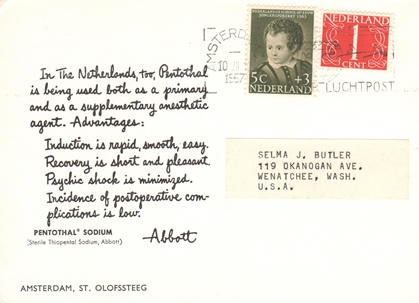 AMSTERDA
10
1957
LUCHTPOST
5C +3
NEDERLAND
NEDERLAND
1
CENT
In The Netherlands, too, Pentothal
is being used both as a primary
and as a supplementary anesthetic
agent. Advantages:
Induction is rapid, smooth, easy.
Recovery is short and pleasant.
Psychic shock is minimized.
Incidence of postoperative com-
plications is low.
PENTOTHAL® SODIUM
(Sterile Thiopental Sodium, Abbott)
Abbott
SELMA J. BUTLER
119 OKANOGAN AVE.
WENATCHEE, WASH.
U.S.A.
AMSTERDAM, ST. OLOFSSTEEG